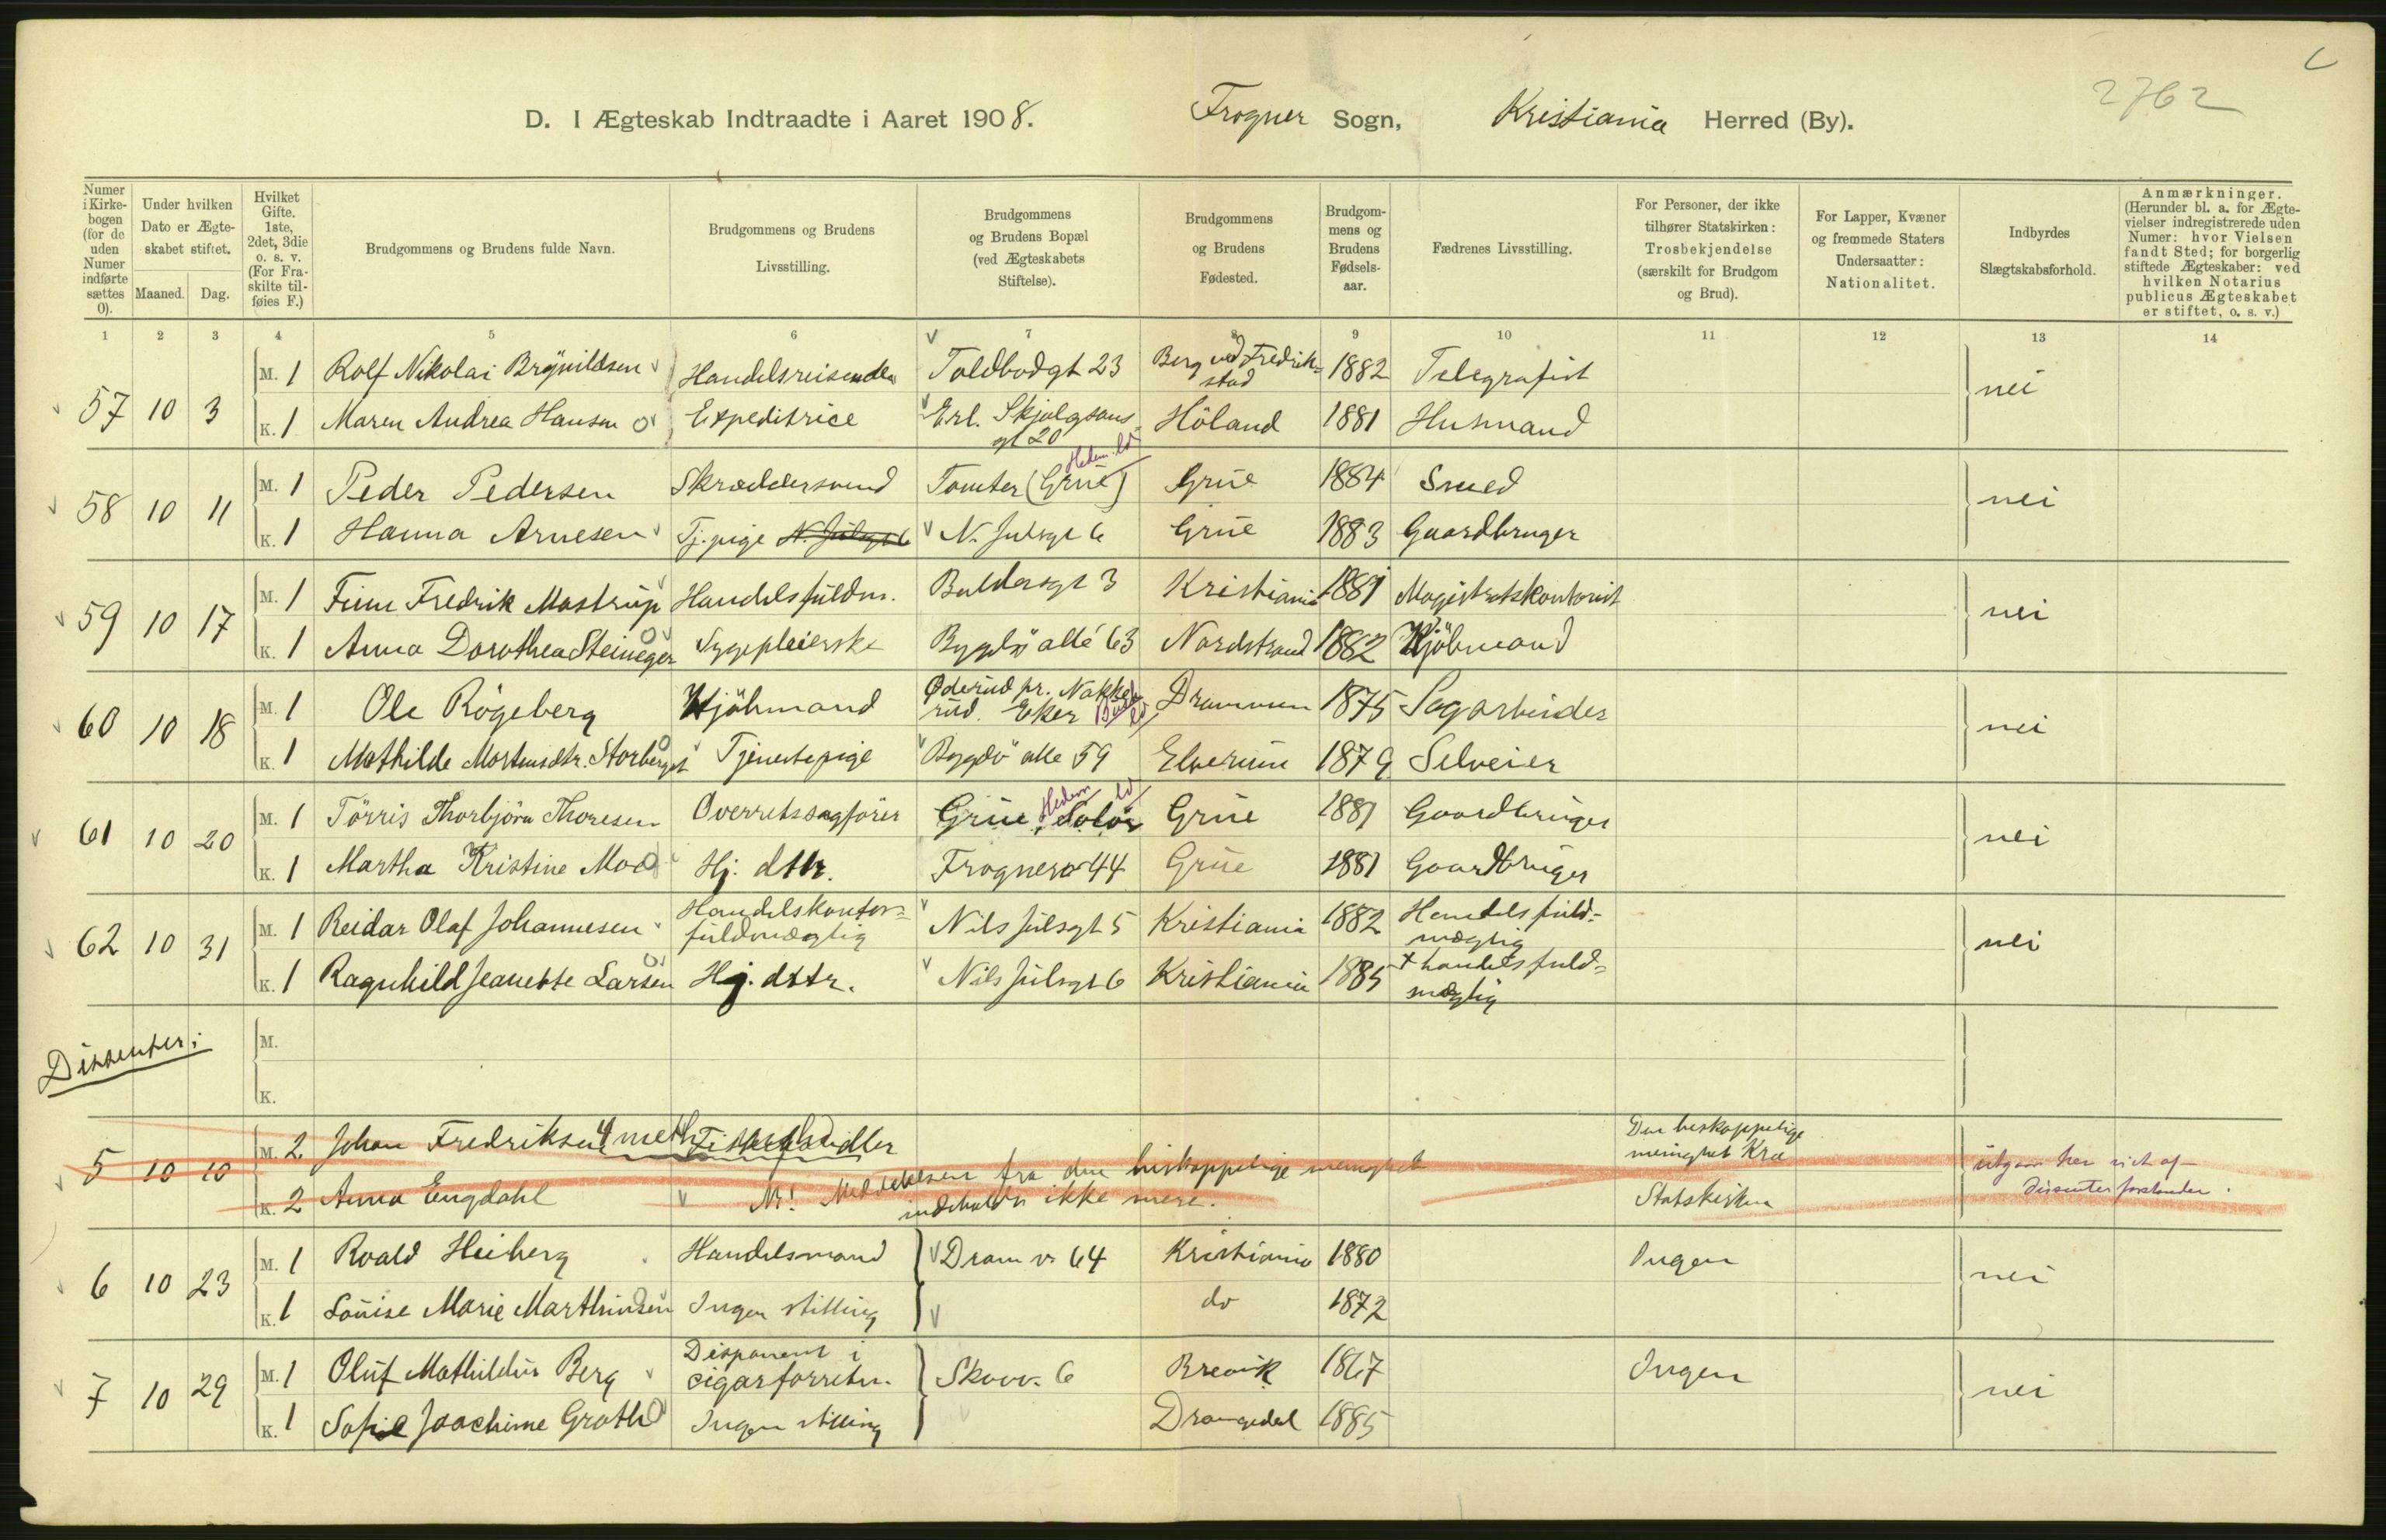 2762
D. I Ægteskab Indtraadte i Aaret 1908. Frogner Sogn, Kristiania Herred (By).
Numer i Kirkebogen (for de uden Numer indførte sættes 0).
Under hvilken Dato er Ægteskabet stiftet.
Maaned. Dag.
Hvilket Gifte. 1ste, 2det, 3die o. s. v. (For Fraskilte tilføies F.)
Brudgommens og Brudens fulde Navn.
Brudgommens og Brudens Livsstilling.
Brudgommens og Brudens Bopæl (ved Ægteskabets Stiftelse).
Brudgommens og Brudens Fødested.
Brudgommens og Brudens Fødselsaar.
Fædrenes Livsstilling.
For Personer, der ikke tilhører Statskirken: Trosbekjendelse (særskilt for Brudgom og Brud).
For Lapper, Kvæner og fremmede Staters Undersaatter: Nationalitet.
Indbyrdes Slægtskabsforhold.
Anmærkninger. (Herunder bl. a. for Ægtevielser indregistrerede uden Numer: hvor Vielsen fandt Sted; for borgerlig stiftede Ægteskaber: ved hvilken Notarius publicus Ægteskabet er stiftet, o. s. v.)
1 2 3 4 5 6 7 8 9 10 11 12 13 14
57 10 3 M. 1 Rolf Nikolai Brynildsen Handelsreisende Toldbodgt 23 Berg ved Fredrikstad 1882 Telegrafist nei
K. 1 Maren Andrea Hansen Expeditrice Erl. Skjalgsons gt 20 Höland 1881 Husmand
58 10 11 M. 1 Peder Pedersen Skræddersvend Tomter (Grue) Hedm. Grue 1884 Smed nei
K. 1 Hanna Arnesen Tj. pige N. Julsgt 6 N. Julsgt 6 Grue 1883 Gaardbruger
59 10 17 M. 1 Finn Fredrik Mastrup Handelsfuldm. Baldersgt 3 Kristiania 1881 Magistratskontorist nei
K. 1 Anna Dorothea Steineger Sygepleierske Bygdö allé 63 Nordstrand 1882 Kjöbmand
60 10 18 M. 1 Ole Rögeberg Kjöbmand Øderud pr. Nakkerud. Eker Drammen 1875 Sagarbeider nei
K. 1 Mathilde Mortensdtr. Storberget Tjenestepige Bygdö alle 59 Elverum 1879 Selveier
61 10 20 M. 1 Törris Thorbjörn Thoresen Overretssagförer Grue, Solör Hedm Grue 1881 Gaardbruger nei
K. 1 Martha Kristine Moe Hj. dttr. Frognerv 44 Grue 1881 Gaardbruger
62 10 31 M. 1 Reidar Olaf Johannesen Handelskontorfuldmægtig Nils Julsgt 5 Kristiania 1882 Handelsfuldmægtig nei
K. 1 Ragnhild Jeanette Larsen Hj. dttr. Nils Julsgt 6 Kristiania 1885 + handelsfuldmægtig
Dissenter:
M.
K.
5 10 10 M. 2 Johan Fredriksen Fiskehandler Den biskoppelige menighet Kra
K. 2 Anna Engdahl N! Meddelelsen fra den biskoppelige menighet indeholdr ikke mere. Statskirken
utgaar her
Dissenterforstander.
6 10 23 M. 1 Roald Heiberg Handelsmand Dram v. 64 Kristiania 1880 Ingen nei
K. 1 Louise Marie Marthinsen Ingen stilling do 1872
7 10 29 M. 1 Oluf Mathildus Berg Disponent i cigarforretn. Skovv. 6 Brevik 1867 Ingen nei
K. 1 Sofie Joachime Groth Ingen stilling Drangedal 1885